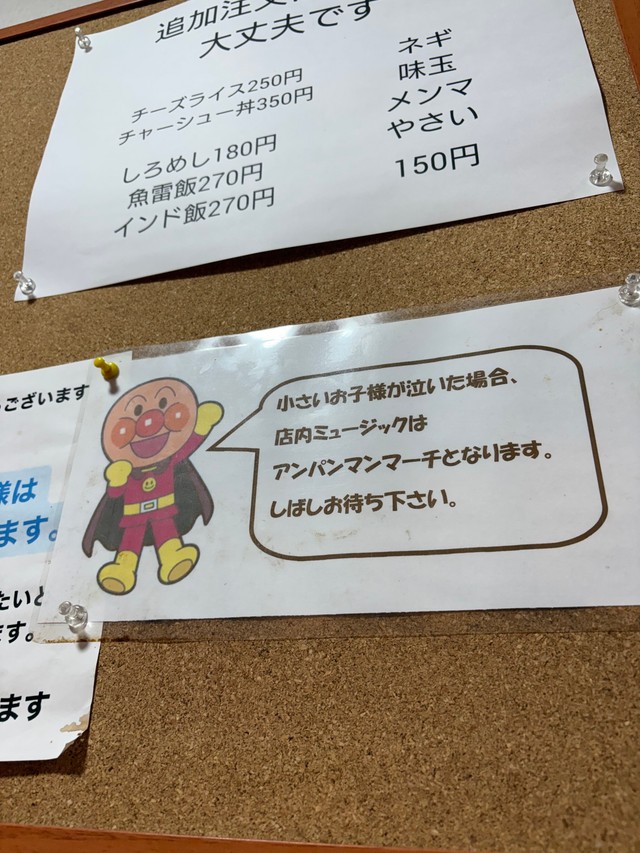 追加注文
大丈夫です
チーズライス250円
チャーシュー丼350円
しろめし180円
魚雷飯270円
インド飯270円
ネギ
味玉
メンマ
やさい
150円
小さいお子様が泣いた場合、
店内ミュージックは
アンパンマンマーチとなります。
しばしお待ち下さい。
ございます
様は
ます。
たいと
ます。
ます